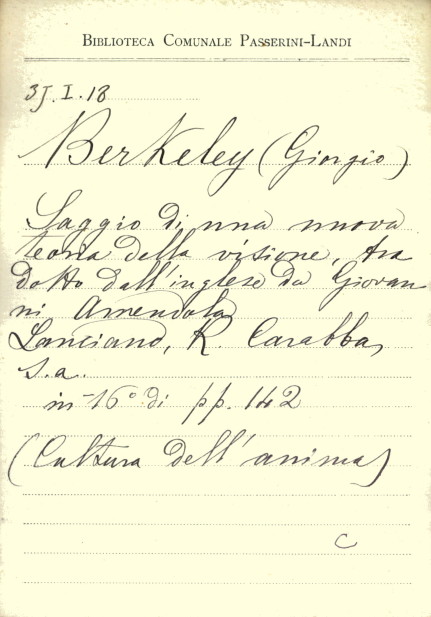 BIBLIOTECA COMUNALE PASSERINI-LANDI
3J.I.18
Berkeley (Giorgio)
Saggio di una nuova
teoria della visione, tra
dotto dall'inglese da Giovan
ni Amendola
Lanciano, R. Carabba,
s.a.
in-16° di pp. 142
(Cultura dell'anima)
C